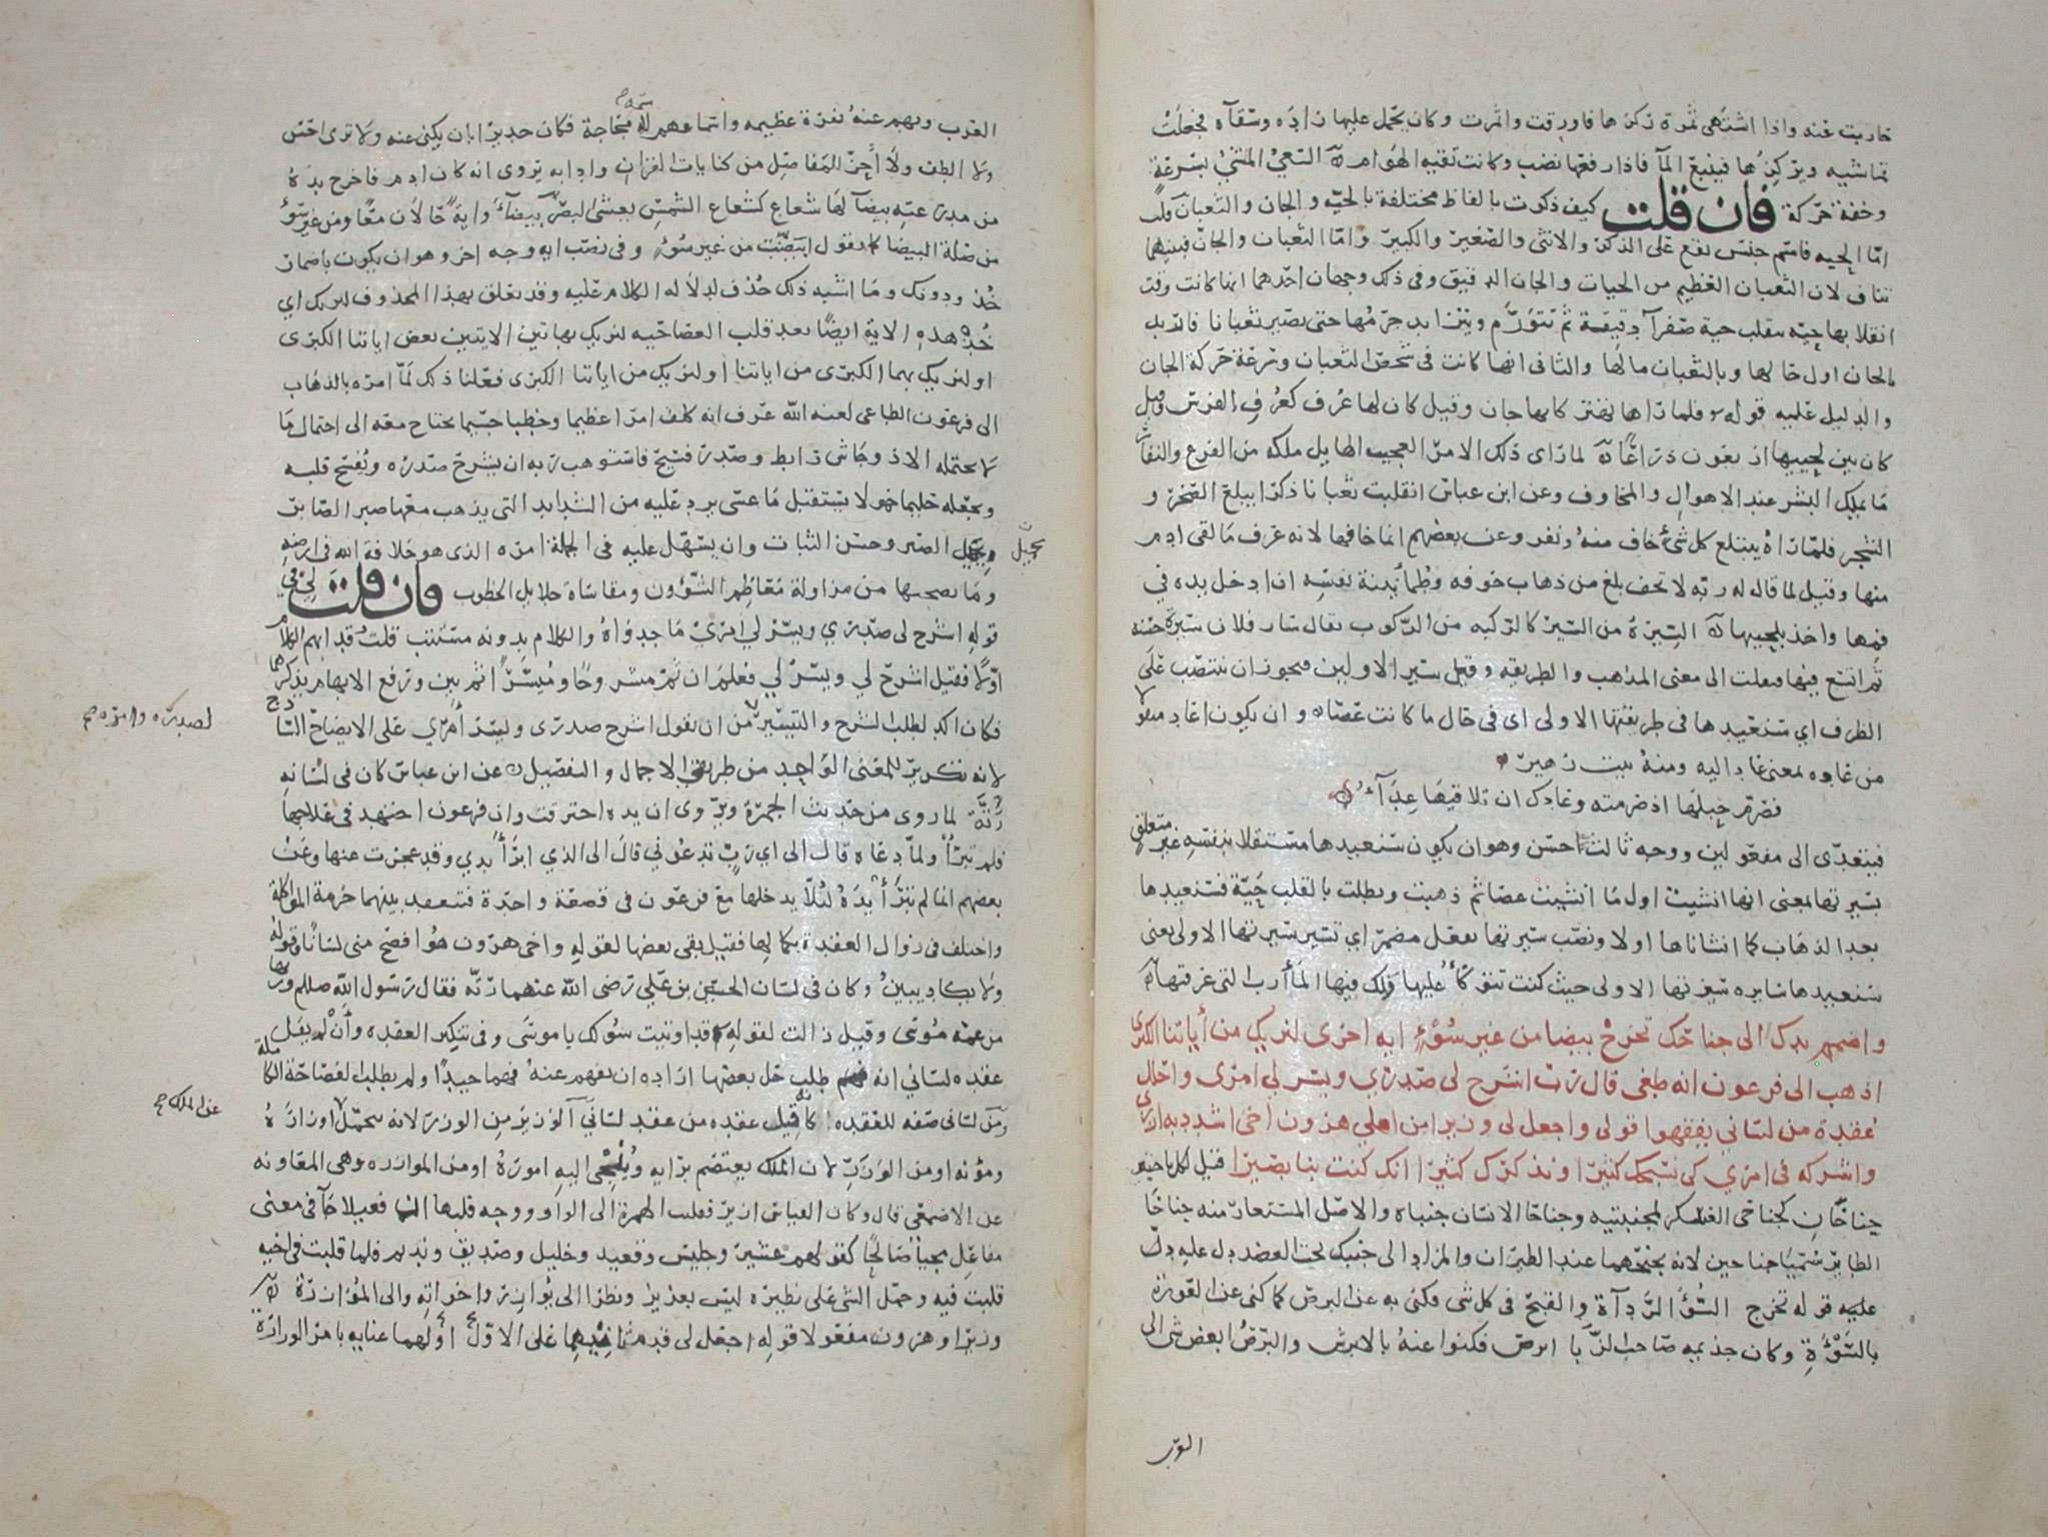 حاربت عنه واذا اشتهى ثمرة ركزها فاورقت واثمرت وكان يحمل عليها زاده وسقآه فجعلت
تماشيه ويركزها فينبع المآ فاذا رفعها نضب وكانت تقيه الهوام ۞ السعي المشي بسرعة
وخفة حركة فان قلت كيف ذكرت بالفاظ مختلفة بالحيه والجان والثعبان قلت
امّا الحيه فاسم جنس تقع على الذكر والانثى والصغير والكبير وامّا الثعبان والجان فبينهما
تناف لان الثعبان العظيم من الحيات والجان الدقيق وفي ذلك وجهان احدهما انها كانت وقت
انقلابها حيه تنقلب حية صفرآ دقيقة ثم تتورّم ويتزايد جرمها حتى تصير ثعبانا فاريد
بالجان اول حالها وبالثعبان مالها والثاني انها كانت في شخص الثعبان وسرعة حركة الجان
والدليل عليه قوله فلما راها تهتز كانها جان وقيل كان لها عرف كعرف الفرس وقيل
كان بين لحييها اربعون ذراعًا ۞ لما راى ذلك الامر العجيب الهايل ملكه من الفزع والنفار
ما يملك البشر عند الاهوال والمخاوف وعن ابن عباس انقلبت ثعبانا ذكرا يبلع الصخر و
الشجر فلما رآه يبتلع كل شئ خاف منه ونفر وعن بعضهم انما خافها لانه عرف ما لقى ادم
منها وقيل لما قال له ربه لا تخف بلغ من ذهاب خوفه وطمأنينة نفسه ان ادخل يده في
فمها واخذ بلحييها ۞ السيرة من السير كالركبه من الركوب يقال سار فلان سيرة حسنة
ثم اتسع فيها فنقلت الى معنى المذهب والطريقه وقيل سير الاولين فيجوز ان ينتصب على
الظرف اي سنعيدها في طريقتها الاولى اى في حال ما كانت عصا وان يكون اعاد منقولا
من عاده بمعنى عاد اليه ومنه بيت زهير
فصرّم حبلها اذ صرمته وعادك ان تلاقيها عداۤء
فيتعدّى الى مفعولين ووجه ثالث احسن وهو ان يكون سنعيدها مستقلا بنفسه غير متعلق
بسيرتها بمعنى انها انشيت اول ما انشيت عصا ثم ذهبت وبطلت بالقلب حيّة فسنعيدها
بعد الذهاب كما انشاناها اولا ونصب سيرتها بفعل مضمر اي تسير سيرتها الاولى يعنى
سنعيدها سايره سيرتها الاولى حيث كنت تتوكأ عليها ولك فيها المأرب التى عرفتها ۞
واضمم يدك الى جناحك تخرج بيضا من غير سوء ايه اخرى لنريك من أياتنا الكبرى
اذهب الى فرعون انه طغى قال رب اشرح لى صدري ويسر لي امرى واحلل
عقدة من لساني يفقهوا قولى واجعل لى وزيرا من اهلي هرون اخى اشدد به ازرى
واشركه في امري كى نسبحك كثيرا ونذكرك كثيرا انك كنت بنا بصيرا قيل لكل ناحيتين
جناحان كجناحى العسكر لمجنبتيه وجناحا الانسان جنباه والاصل المستعار منه جناحا
الطاير سُمّيا جناحين لانه يجنحهما عند الطيران والمراد الى جنبك تحت العضد دل عليه ذلك
عليه قوله تخرج السُّوءُ الردآة والقبح في كل شى فكنى به عن البرص كما كنى عن العورة
بالسوءة وكان جذيمه صاحب الزبّا ابرص فكنوا عنه بالابرش والبرص ابعض شى الى
العرب
العرب وبهم عنه نفرة عظيمه واسماعهم لاسمه مجّاجة فكان جديرا بان يكنى عنه ولا ترى احسن
ولا الطف ولا أحزّ للمفاصل من كنايات القران وادابه يروى انه كان ادم فاخرج يده
من مدرعته بيضآ لها شعاع كشعاع الشمس يعشى البصر بيضآء واية حالان معًا ومن غير سوء
من صلة البيضا كما تقول ابيضّت من غير سوء وفي نصب ايه وجه اخر وهو ان يكون باضمار
خُذ ودونك وما اشبه ذلك حُذف لدلالة الكلام عليه وقد تعلق بهذا المحذوف لنريك اي
خُذ هذه الاية ايضًا بعد قلب العصا حيه لنريك بهاتين الايتين بعض اياتنا الكبرى
او لنريك بهما الكبرى من اياتنا او لنريك من اياتنا الكبرى فعلنا ذلك لمّا امره بالذهاب
الى فرعون الطاغى لعنه الله عرف انه كلف امرا عظيما وخطبا جسيما يحتاج معه الى احتمال ما
لا يحتمله الا ذو جاش رابط وصدر فسيح فاستوهب ربه ان يشرح صدره ويفسح قلبه
ويجعله حليما حمولا يستقبل ما عسى يرد عليه من الشدايد التى يذهب معها صبر الصابر
بجميل الصبر وحسن الثبات وان يسهل عليه في الجملة امره الذى هو خلافة الله في ارضه
بجميل
وما يصحبها من مزاولة معاظم الشؤون ومقاساة جلايل الخطوب فان قلت لي في
قوله اشرح لى صدري ويسّر لي امري ما جدواه والكلام بدونه مستتب قلت قد ابهم الكلام
اولًا فقيل اشرح لي ويسّر لي فعلم ان ثمّ مشروحًا وميسّرًا ثم بين ورفع الابهام بذكرهما
فكان اكد لطلب الشرح والتيسير من ان يقول اشرح صدرى ويسّر أمري على الايضاح الساذج
لصدره وامره صح
لانه تكرير للمعنى الواحد من طريقي الاجمال والتفصيل عن ابن عباس كان في لسانه
رُتّة لما روى من حديث الجمرة ويروى ان يده احترقت وان فرعون اجتهد في علاجها
فلم تبرأ ولما دعاه قال الى اي ربّ تدعوني قال الى الذي ابرأ يدي وقد عجزت عنها وعن
بعضهم انما لم تبرأ يده لئلا يدخلها مع فرعون في قصعة واحدة فتنعقد بينهما حرمة المواكلة
واختلف في زوال العقدة بكمالها فقيل بقى بعضها لقوله واخى هرون هو افصح منى لسانًا وقوله
ولا يكاد يبين وكان في لسان الحسين بن علي رضى الله عنهما رتّه فقال رسول الله صللم ورثها
من عمّه موسى وقيل زالت لقوله قد اوتيت سؤلك يا موسى وفي تنكير العقده وأن لم يقل
عقده لسانى انه طلب حل بعضها ارادة ان يفهم عنه فهما جيدًا ولم يطلب الفصاحة الكاملة
ومن لسانى صفه للعقده كانه قيل عقده من عقد لسانيۤ الوزير من الوزر لانه يتحمّل اوزاره
عن الملك صح
ومؤنه او من الوزَر لان الملك يعتصم برايه ويُلجئ اليه اموره او من الموازره وهى المعاونه
عن الاصمعى قال وكان القياس ازير فقلبت الهمزة الى الواو ووجه قلبها ان فعيلا جآ في معنى
مفاعل مجيأ صالحًا كقولهم عشير وجليس وقعيد وخليل وصديق ونديم فلما قلبت في اخيه
قلبت فيه وحمل الشى على نظيره ليس بعزيز ونظرا الى يوازر واخواته والى الموازرة ۞
وزيرا وهرون مفعولا قوله اجعل لى قدم ثانيهما على الاوّل اولهما عناية بامر الوزارة